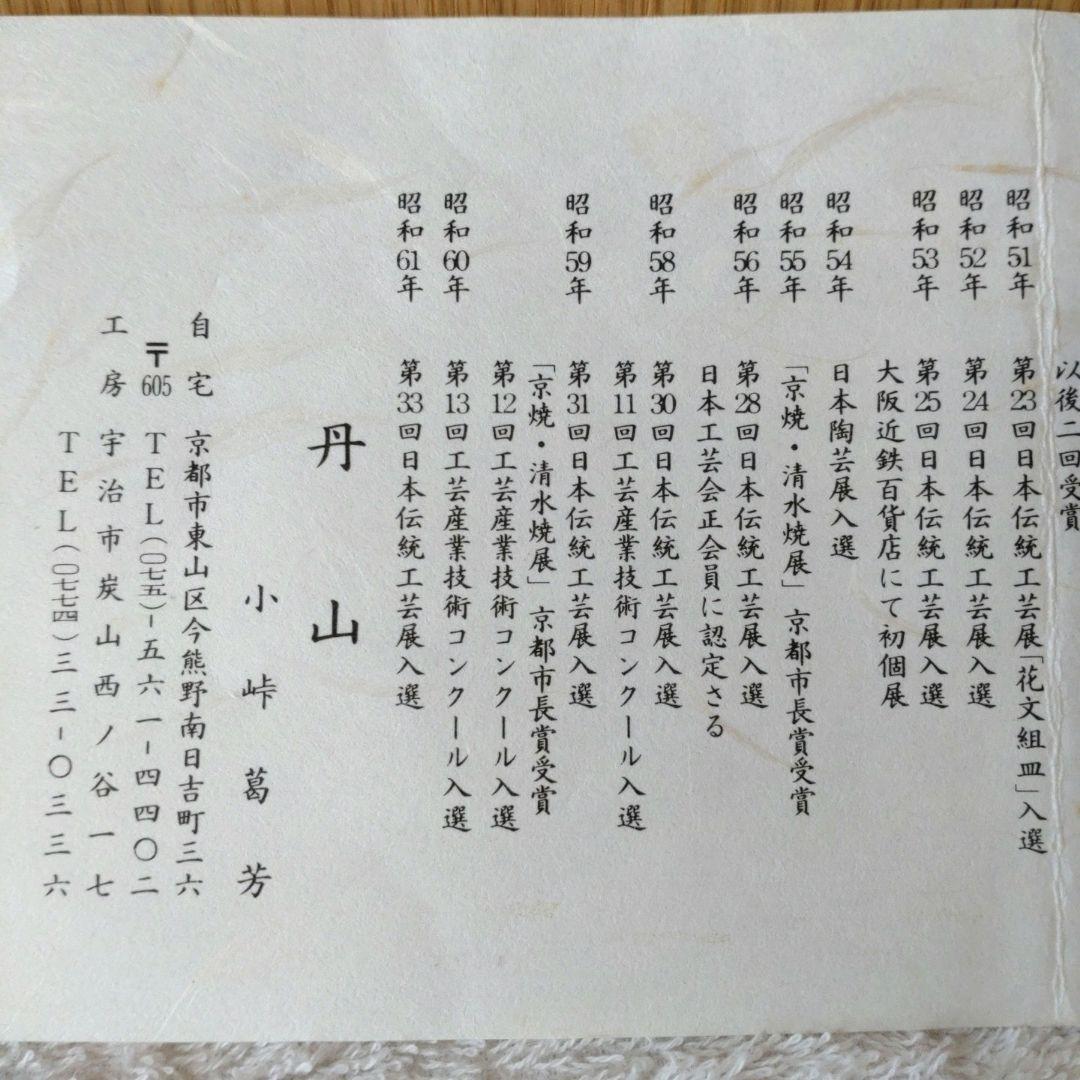 以後二回受賞
昭和51年 第23回日本伝統工芸展「花文組皿」入選
昭和52年 第24回日本伝統工芸展入選
昭和53年 第25回日本伝統工芸展入選
大阪近鉄百貨店にて初個展
昭和54年 日本陶芸展入選
昭和55年 「京焼・清水焼展」京都市長賞受賞
昭和56年 第28回日本伝統工芸展入選
日本工芸会正会員に認定さる
昭和58年 第30回日本伝統工芸展入選
第11回工芸産業技術コンクール入選
昭和59年 第31回日本伝統工芸展入選
「京焼・清水焼展」京都市長賞受賞
第12回工芸産業技術コンクール入選
昭和60年 第13回工芸産業技術コンクール入選
昭和61年 第33回日本伝統工芸展入選
丹山
小峠葛芳
自宅 京都市東山区今熊野南日吉町三六
〒605 TEL(〇七五)-五六一-四四〇二
工房 宇治市炭山西ノ谷一七
TEL(〇七七四)三三-〇三三六